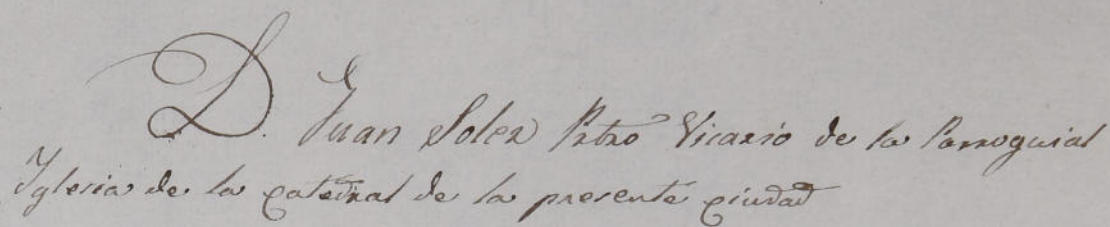 D. Juan Soler Pbro Vicario de la Parroquial
Yglesia de la catedral de la presente ciudad